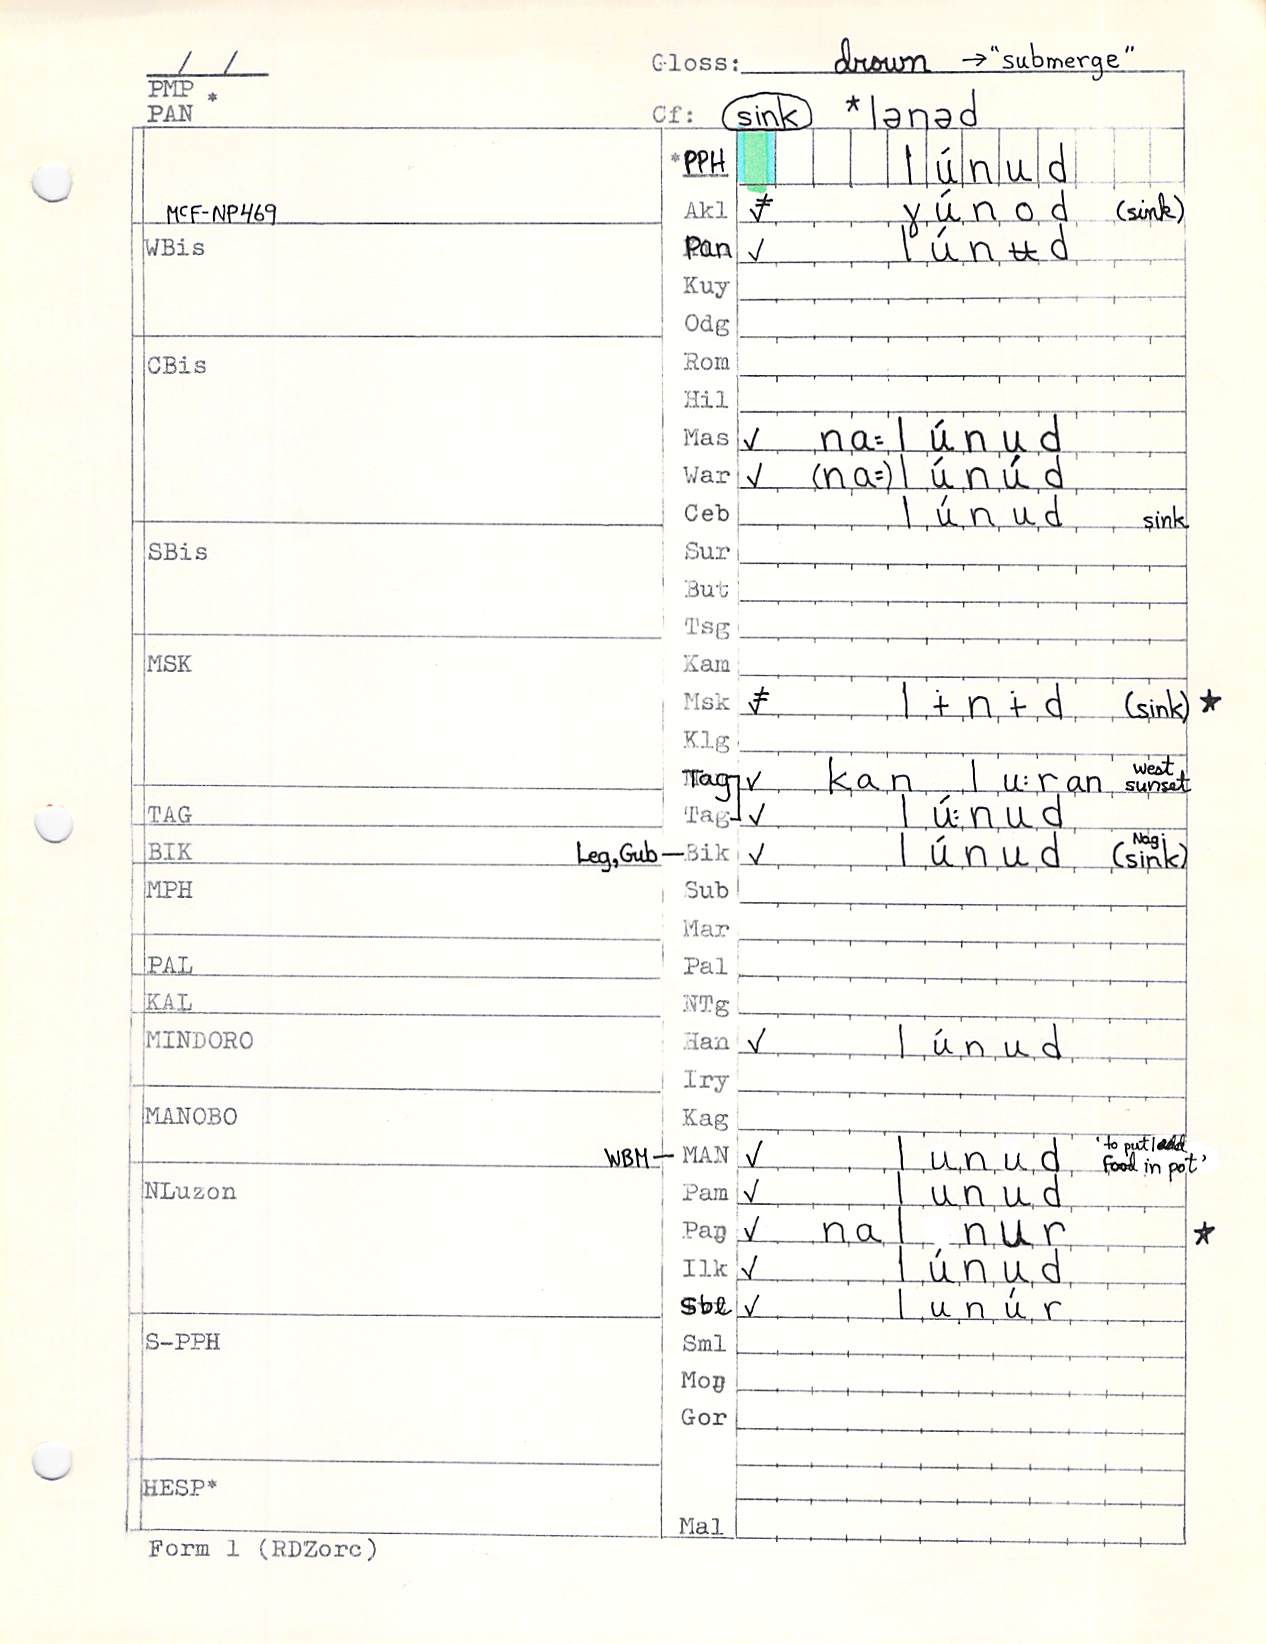 / /
Gloss: drown → "submerge"
PMP *
PAN
Cf: sink *lənəd
*PPH lúnud
MCF-NP469
Akl ≠ ɣúnod (sink)
WBis
Pan ✓ lúnʉd
Kuy
Odg
CBis
Rom
Hil
Mas ✓ na=lúnud
War ✓ (na=)lúnúd
Ceb lúnud sink
SBis
Sur
But
Tsg
MSK
Kam
Msk ≠ lɨnɨd (sink) ★
Klg
Tag ✓ kan lu:ran west sunset
TAG
Tag ✓ lú:nud
BIK
Leg, Gub — Bik ✓ lúnud Nagi (sink)
MPH
Sub
Mar
PAL
Pal
KAL
NTg
MINDORO
Han ✓ lúnud
Iry
MANOBO
Kag
WBM — MAN ✓ lunud 'to put/add food in pot'
NLuzon
Pam ✓ lunud
Paŋ ✓ nal nur ★
Ilk ✓ lúnud
Sbl ✓ lunúr
S-PPH
Sml
Moŋ
Gor
HESP*
Mal
Form 1 (RDZorc)